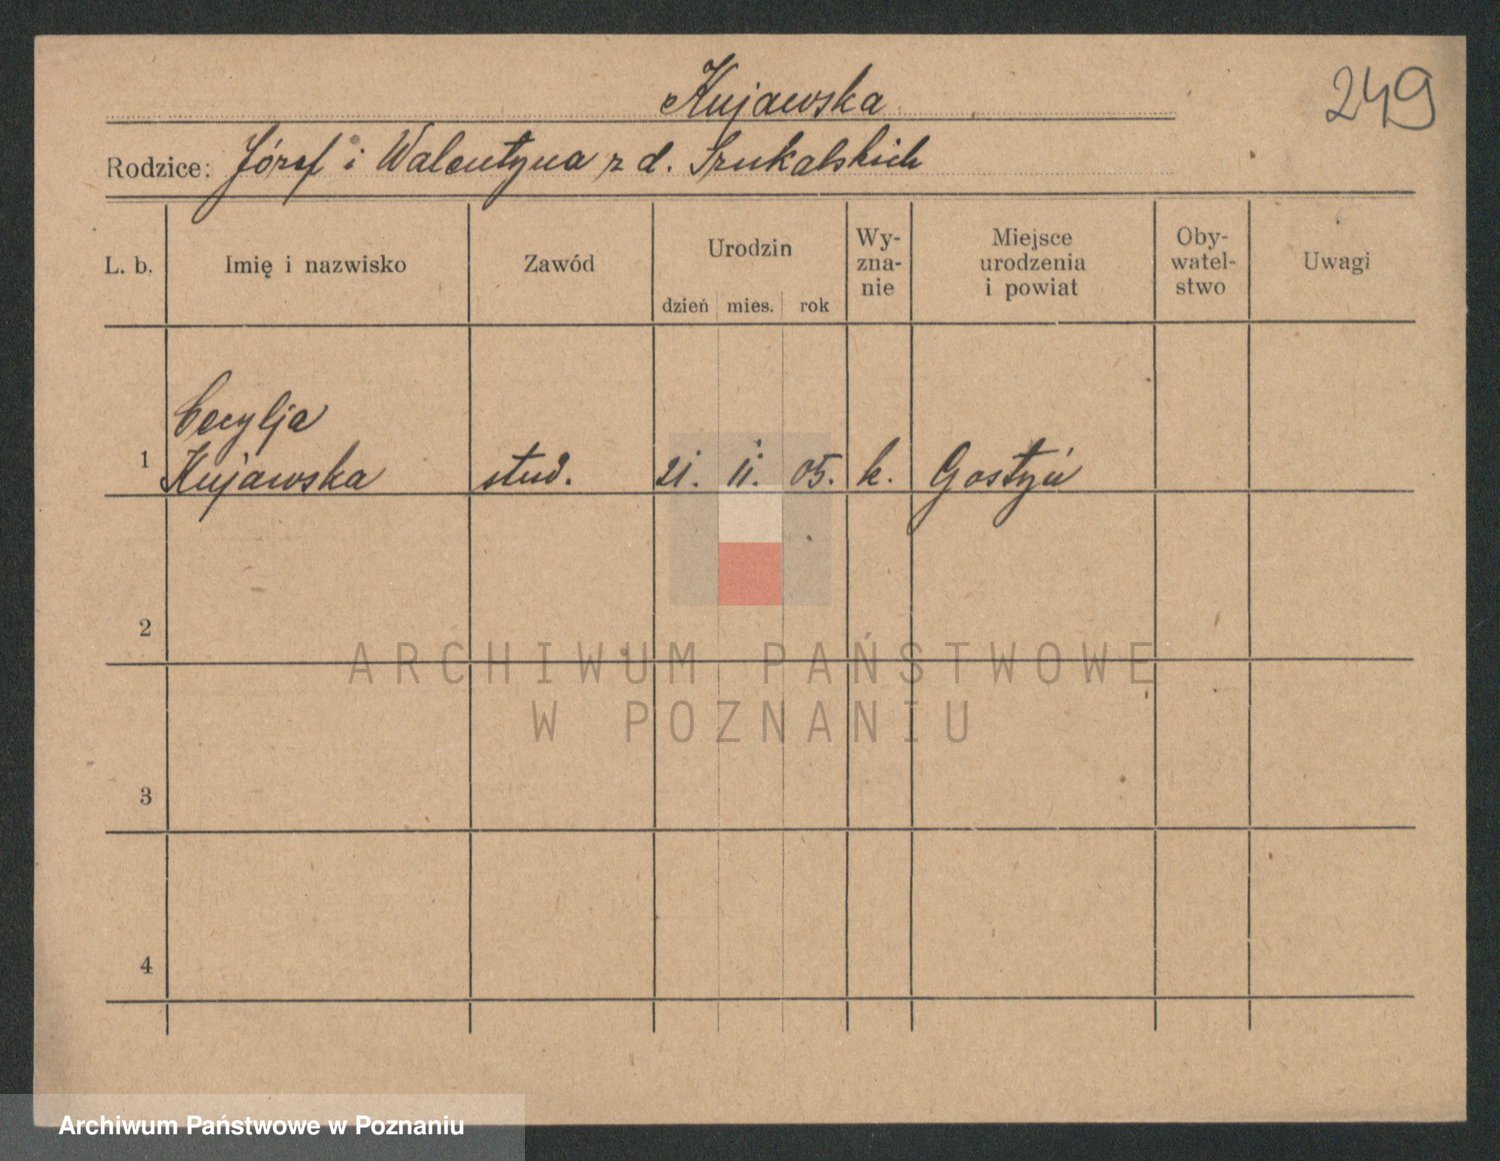 249
Kujawska
Rodzice: Józef i Walentyna z d. Szukalskich
L. b. Imię i nazwisko Zawód Urodzin dzień mies. rok Wy-zna-nie Miejsce urodzenia i powiat Oby-watel-stwo Uwagi
Cecylja
1 Kujawska stud. 21. 11. 05. k. Gostyń
2
ARCHIWUM PAŃSTWOWE
W POZNANIU
3
4
Archiwum Państwowe w Poznaniu